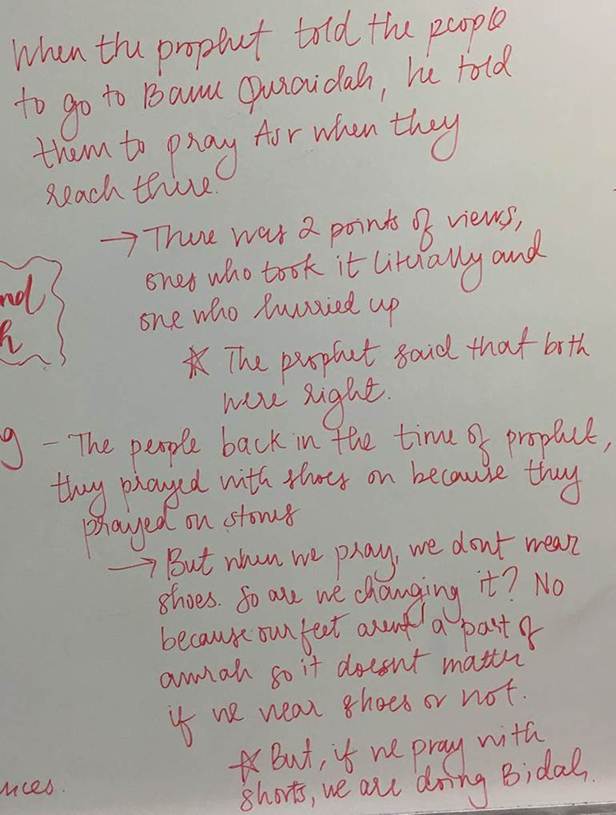 When the prophet told the people
to go to Banu Quraidah, he told
them to pray Asr when they
reach there.
→ There was 2 points of views,
ones who took it literally and
one who hurried up
nd
h
☆ The prophet said that both
were right.
g - The people back in the time of prophet,
they prayed with shoes on because they
prayed on stones
→ But when we pray, we dont wear
shoes. So are we changing it? No
because our feet arent a part of
awrah so it doesnt matter
if we wear shoes or not.
☆ But, if we pray with
shorts, we are doing Bidah.
nces.